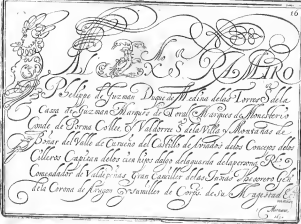 EL EX^mo S^r RAMIRO
Phelippe de Guzman Duque de Medina delas Torres de la
Cassa de Guzman Marques de Toral Marques de Monesterio
Conde de Parma y Colle, y Valdorce S. de la Villa y Montañas de
Boñar del Valle de Curueño del Castillo de los Concejos de los
Cilleros Capitan de los cien hijos dalgo de la guarda de la persona R^l
Comendador de Valdepeñas Gran Canciller de las Indias Thesorero
de la Corona de Aragon y Sumiller de Corps de su Magestad